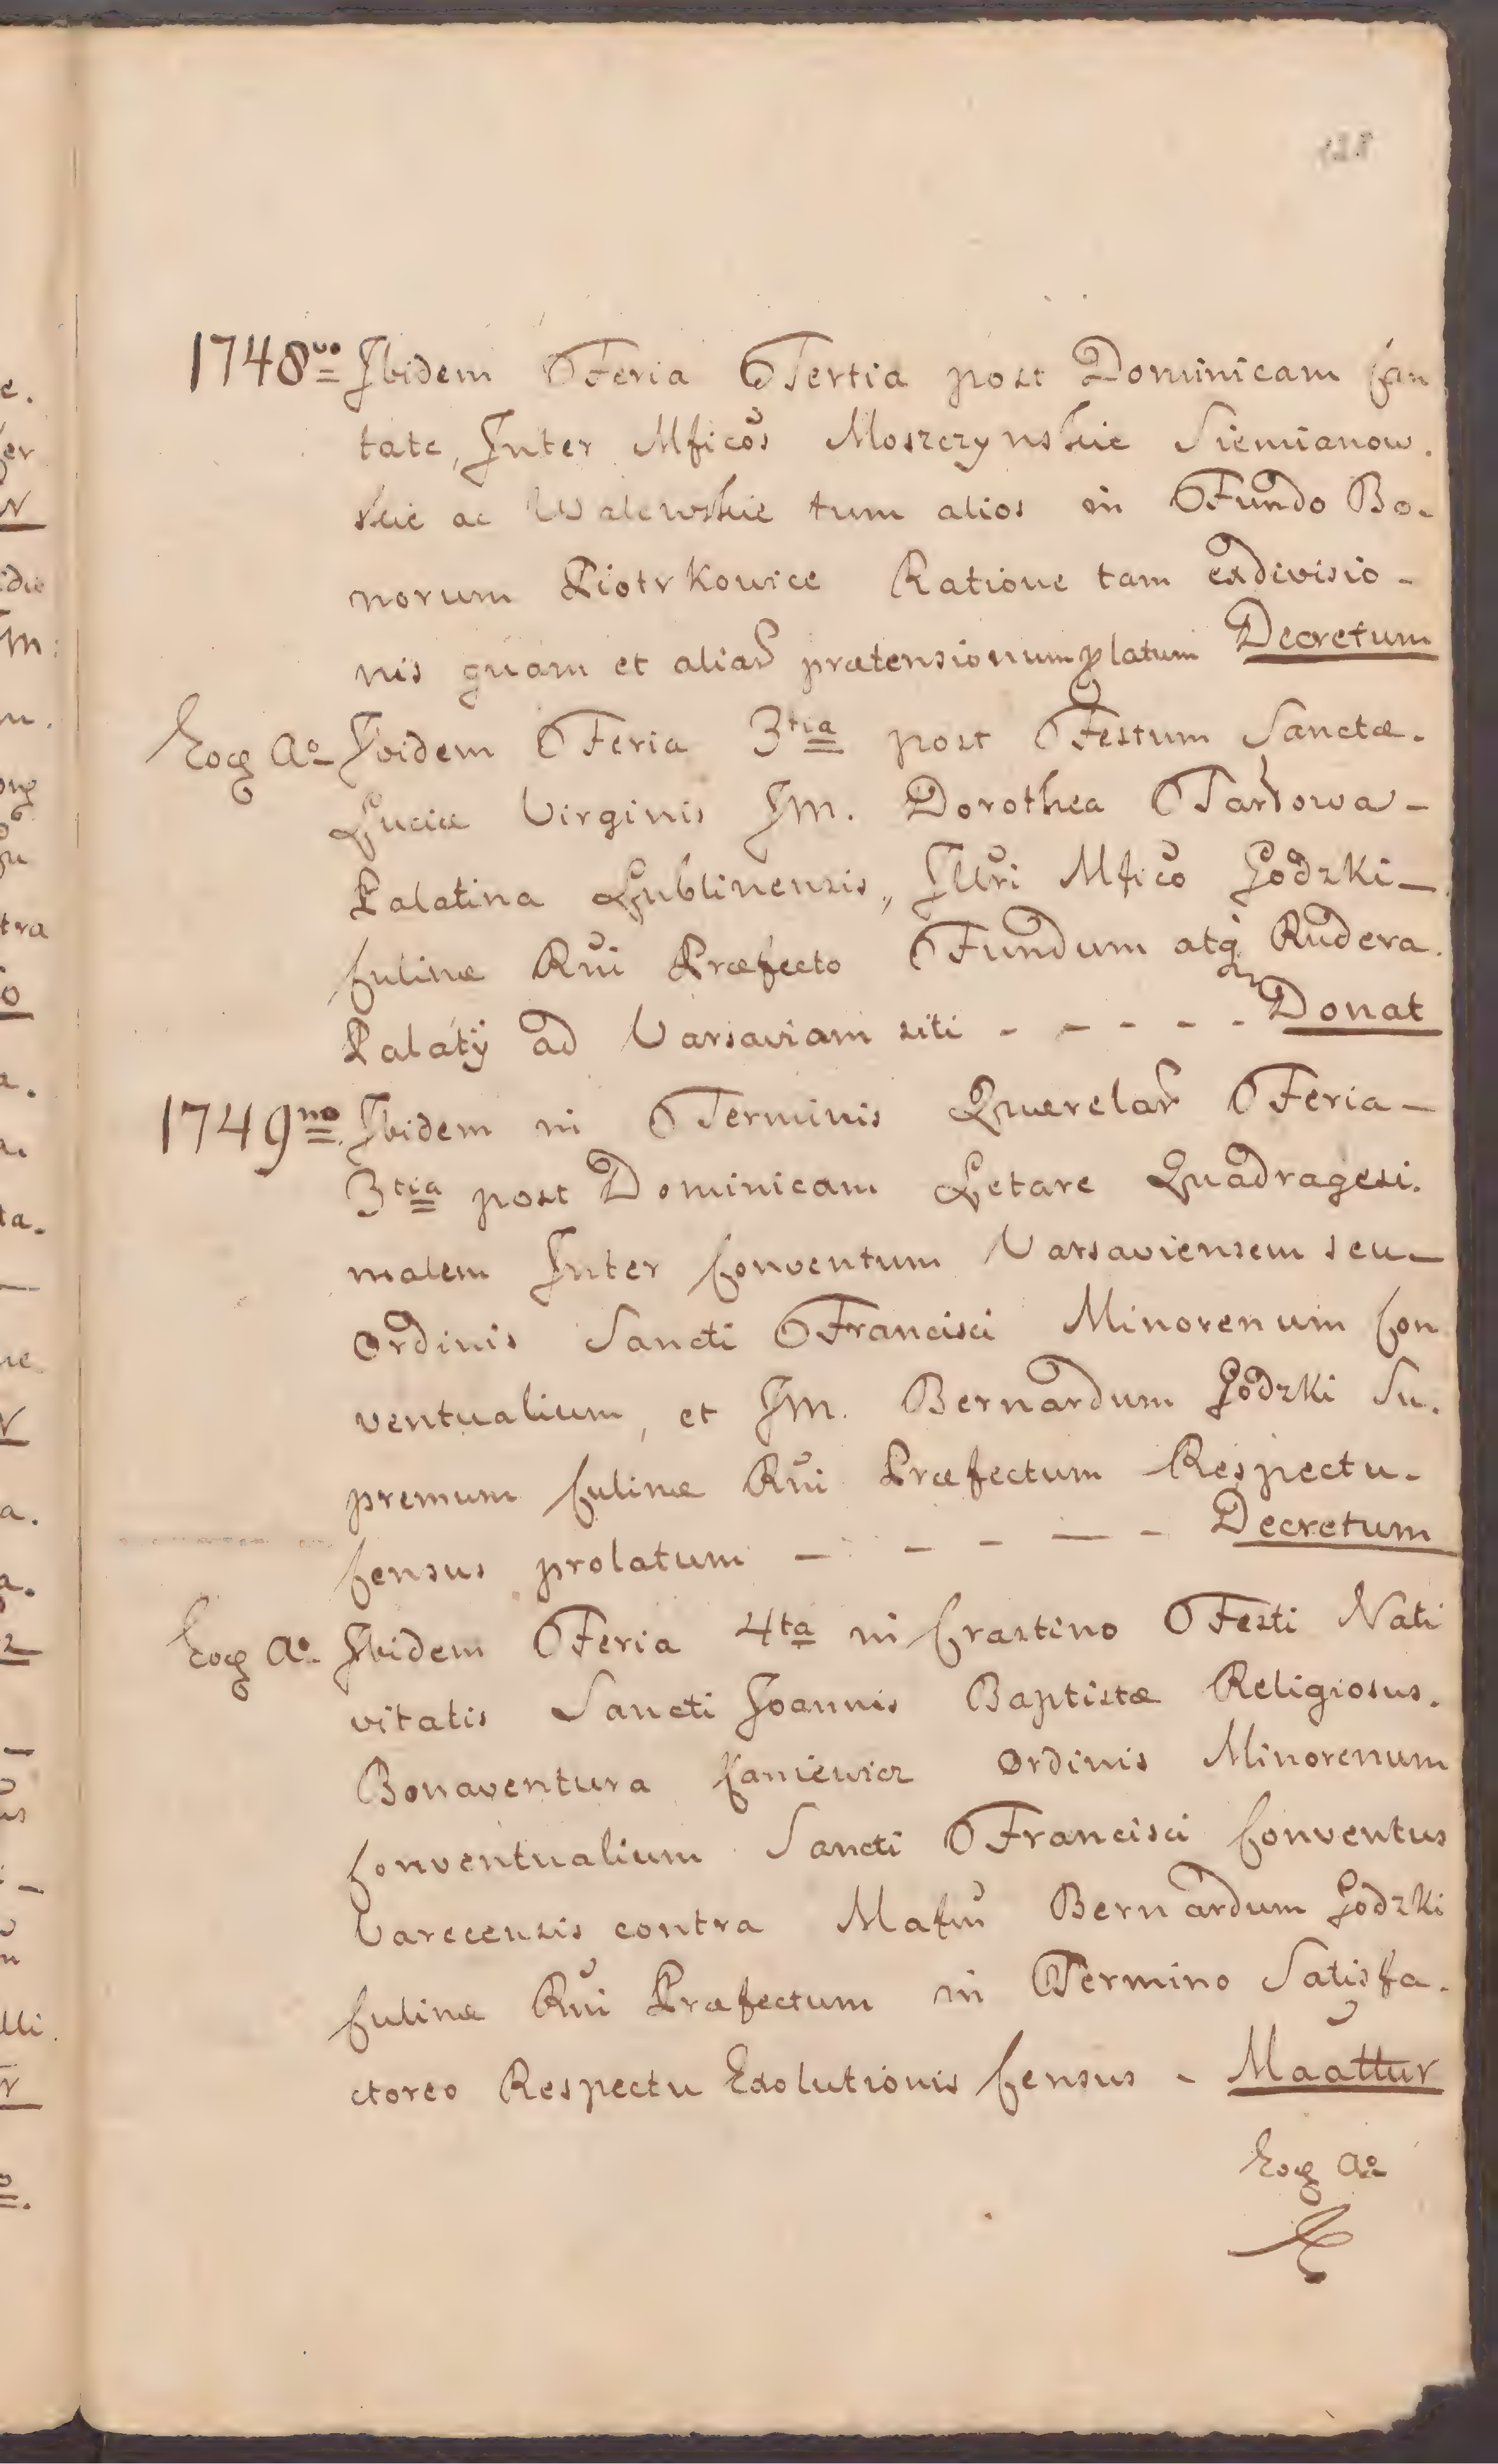 1748vo Ibidem Feria Tertia post Dominicam Can
tate, Inter Mficos Moszczynskie Siemianow.
skie ac Walewskie tum alios in Fundo Bo.
norum Piotrkowice Ratione tam exdivisio -
nis quam et aliar prætensionum platum Decretum
Eoq Ao Ibidem Feria 3tia post Festum Sanctæ.
Luciæ Virginis JM. Dorothea Tarłowa -
Palatina Lublinensis, Illri Mfico Godzki -
Culinæ Rui Præfecto Fundum atq Rudera.
Palatÿ ad Varsaviam siti - - - - - Donat
1749no Ibidem in Terminis Querelar Feria -
3tia post Dominicam Letare Quadragesi.
malem Inter Conventum Varsaviensem seu -
Ordinis Sancti Francisci Minorenum Con
ventualium, et JM. Bernardum Godzki Su.
premum Culinæ Rui Præfectum Respectu.
Census prolatum - - - - - Decretum
Eoq Ao Ibidem Feria 4ta in Crastino Festi Nati
vitatis Sancti Joannis Baptistæ Religiosus.
Bonaventura Kaniewicz Ordinis Minorenum
Conventualium Sancti Francisci Conventus
Varecensis contra Mafm Bernardum Godzki
Culinæ Rui Præfectum in Termino Satisfa.
ctoreo Respectu Exolutionis Census - Maattur
Eoq Ao